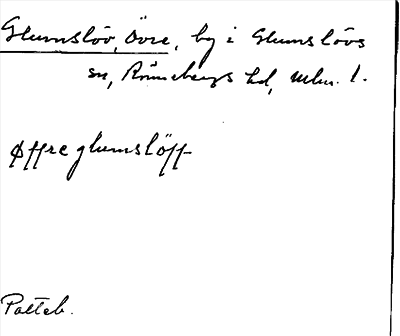 Glumslöv, Övre, by i Glumslövs
sn, Rönnebergs hd, Mlm. l.
Øffre glumslöff
Palteb.